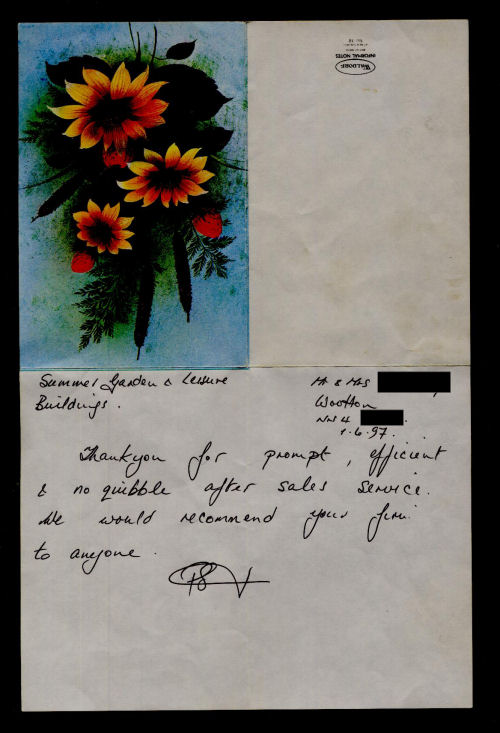 WALDORF
INFORMAL NOTES
Summer Garden & Leisure
Buildings.
Mr & Mrs
Wootton
NN4
1.6.97.
Thankyou for prompt, efficient
& no quibble after sales service.
We would recommend your firm
to anyone.